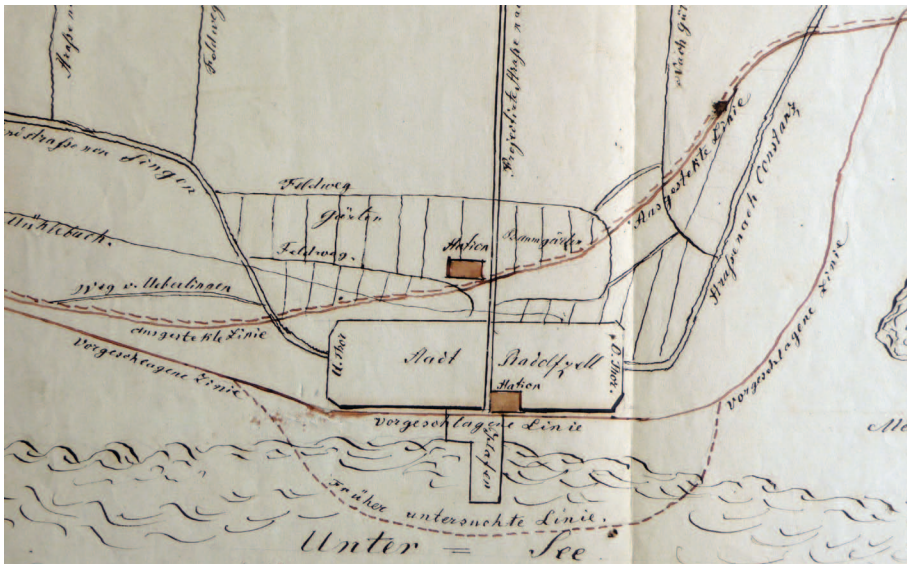 Straße na
Feldweg
Projectirte Straße na
Nach Gü
ndstraße von Singen
Mühlebach.
Feldweg
Gärten
Feldweg.
Station
Baumgärten
Ausgestekte Linie
Straße nach Constanz
Weg v. Ueberlingen
Ausgestekte Linie
Vorgeschlagene Linie
U. Thor
Stadt
Radolfzell
O. Thor.
Station
Vorgeschlagene Linie
Vorgeschlagene Linie
Hafen
Früher untersuchte Linie.
Unter = See
Me